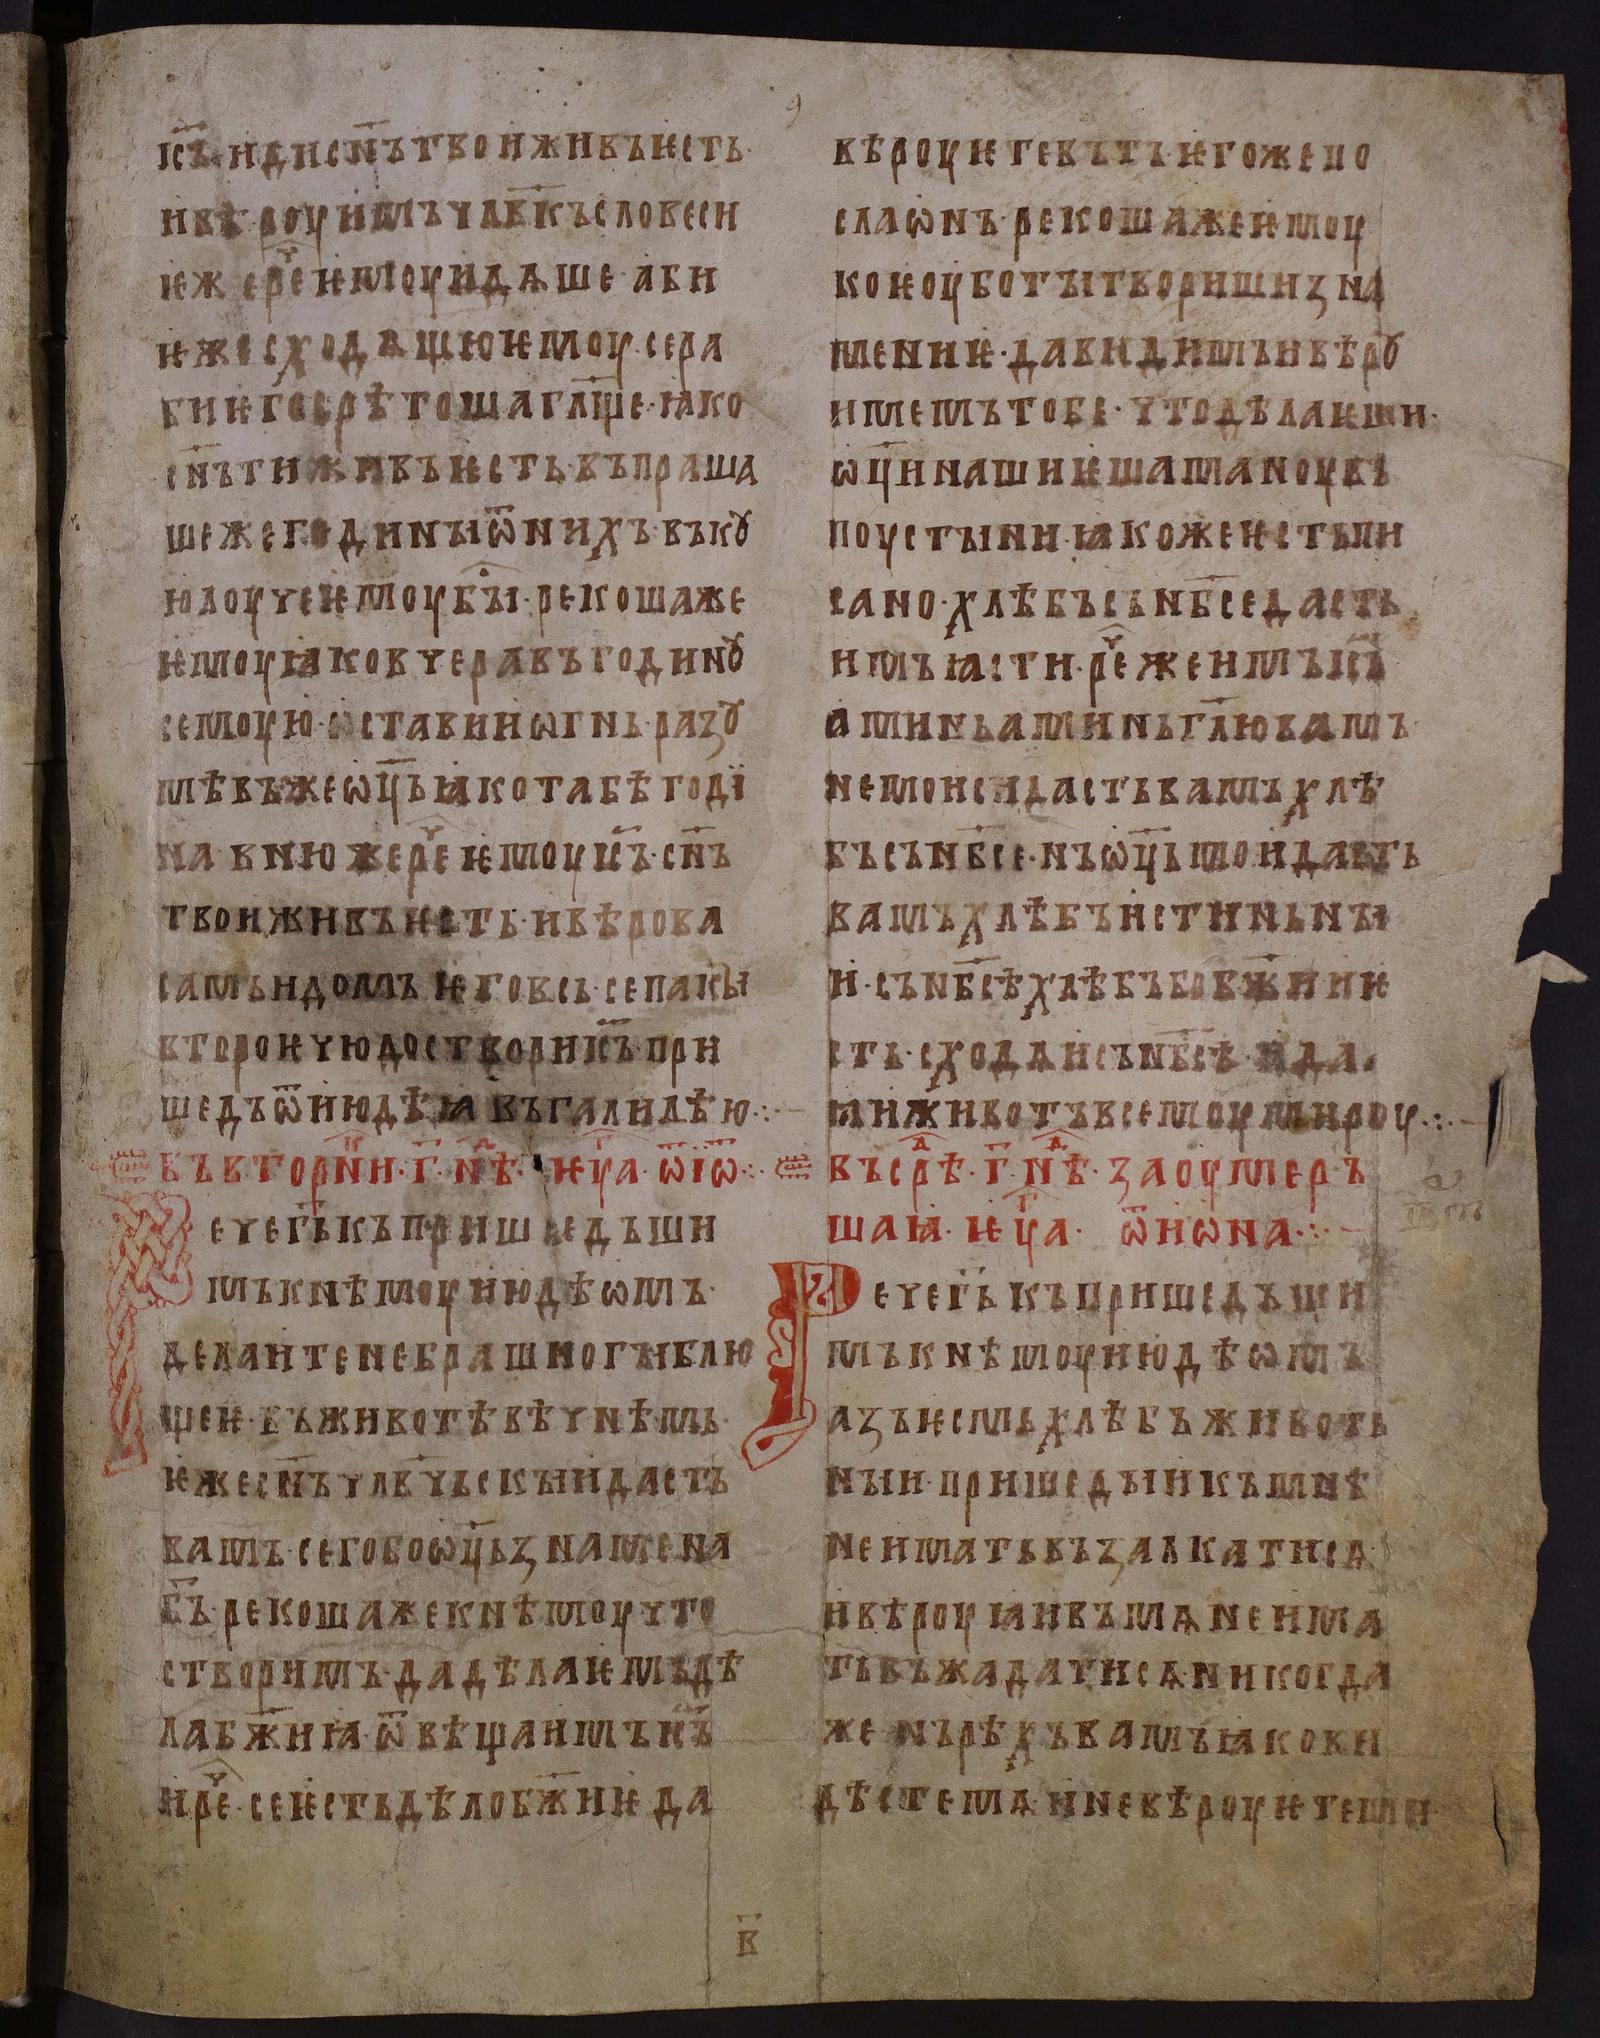 9
іс҃ъ·иди сн҃ъ твои живъ ѥсть·
и вѣроу имъ ч҃лвкъ словеси
ѥже реч҃ ѥмоу идѧше· аби
ѥже сходѧщю ѥмоу· се ра
би ѥго сърѣтоша гл҃ще· ꙗко
сн҃ъ ти живъ ѥсть· въпраша
шеже годины ѿ нихъ· въ кꙋ
ю лоуче ѥмоу бы҃· рекошаже
ѥмоу ꙗко вчера въ годинꙋ
семоую· ѡстави и ѡгнь· разꙋ
мѣвъже ѡц҃ь ꙗко та бѣ годї
на в нюже реч҃ ѥмоу іс҃ъ· сн҃ъ
твои живъ ѥсть· и вѣрова
самъ и домъ ѥго всь· се пакы
второѥ чюдо створи іс҃ъ· при
шедъ ѿ июдѣꙗ въ галилѣю·:·
въ вторни҃к· г҃· н҃дѣ· ѥу҃га· ѿ іѡ҃·:·
ече г҃ь къ пришедъши
мъ к нѣмоу июдѣѡмъ·
делаите не брашно гыблю
щеѥ· въ животѣ вѣчнѣмь·
ѥже сн҃ъ ч҃лвчьскыи дасть
вамъ· сего бо ѡц҃ь знамена
б҃ъ· рекошаже к нѣмоу что
створимъ· да дѣлаѥмъ дѣ
ла бж҃иꙗ· ѿвѣща имъ іс҃ъ
и реч҃· се ѥсть дѣло бж҃иѥ да
вѣроуѥте въ тъ ѥгоже по
сла ѡнъ· рекошаже ѥмоу
коѥ оубо ты твориши зна
мениѥ· да видимъ и вѣрꙋ
имемъ тобе· что дѣлаѥши·
ѡц҃и наши ѥша маноу въ
поустыни· ꙗкоже ѥсть пи
сано· хлѣбъ съ нб҃се дасть
имъ ꙗсти· реч҃же имъ іс҃ъ
аминь аминь гл҃ю вамъ·
не моиси дасть вамъ хлѣ
бъ съ нб҃се· нъ ѡц҃ь мои даѥть
вамъ хлѣбъ истиньны
и· съ нб҃сѣ хлѣбъ бо бж҃ии ѥ
сть· сходѧи съ нб҃сѣ· и да
ꙗи животъ всемоу мироу·:·
въ срѣ҃д· г҃· н҃дѣ· за оумеръ
шаꙗ· ѥу҃га· ѿ иѡна·:·
Рече г҃ь къ пришедъши
мъ к нѣмоу июдѣѡмъ
азъ ѥсмь хлѣбъ животь
ныи· пришедыи къ мнѣ
не имать възалкатисѧ·
и вѣроуꙗи въ мѧ не има
ть въжадатисѧ никогда
же· нъ рѣхъ вамъ ꙗко ви
дѣсте мѧ· и не вѣроуѥте ми
в҃